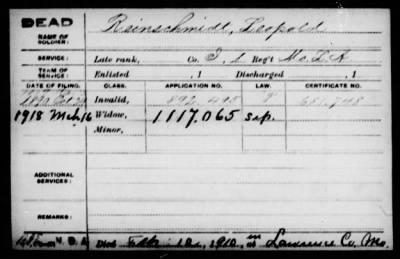 DEAD
NAME OF SOLDIER: Reinschmidt, Leopold
SERVICE: Late rank, Co. I, 1 Reg't Mo. L. A.
TERM OF SERVICE: Enlisted , 1 Discharged , 1
DATE OF FILING. CLASS. APPLICATION NO. LAW. CERTIFICATE NO.
Invalid,
1918 Mch 16 Widow, 1117.065
Minor,
ADDITIONAL SERVICES:
REMARKS:
Died 1910, in Lawrence Co, Mo.